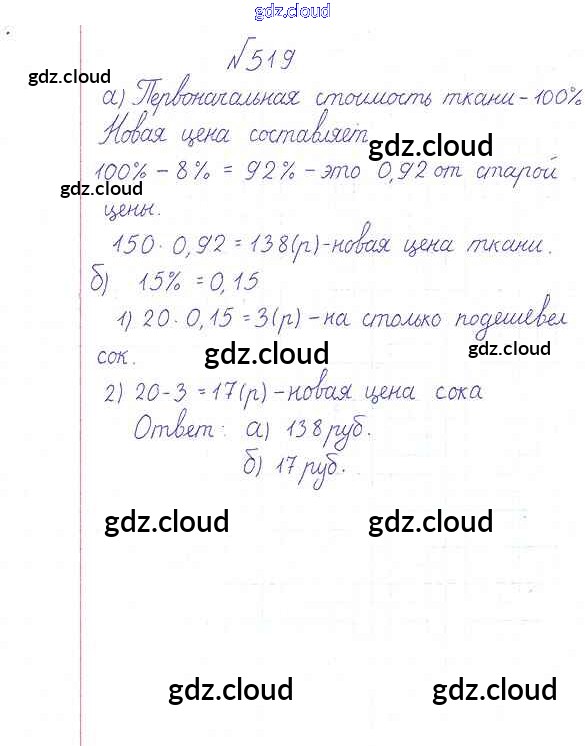 gdz.cloud
№519
gdz.cloud
а) Первоначальная стоимость ткани - 100%
Новая цена составляет
gdz.cloud
100% - 8% = 92% - это 0,92 от старой
gdz.cloud
цены.
150 · 0,92 = 138(р) - новая цена ткани.
б) 15% = 0,15
1) 20 · 0,15 = 3(р) - на столько подешевел
gdz.cloud
сок.
gdz.cloud
2) 20 - 3 = 17(р) - новая цена сока
Ответ: а) 138 руб.
б) 17 руб.
gdz.cloud gdz.cloud
gdz.cloud gdz.cloud